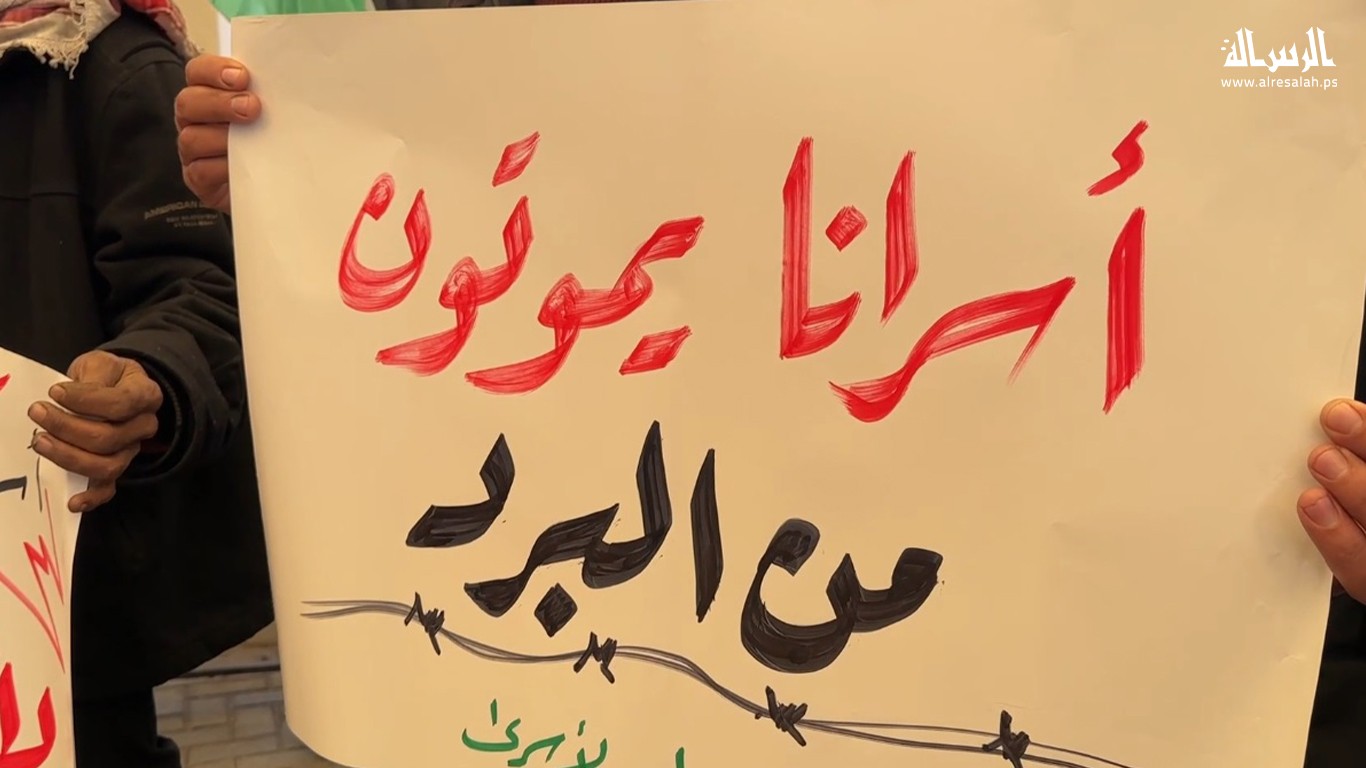 الرسالة
www.alresalah.ps
أسرانا يموتون
من البرد
لأسرى